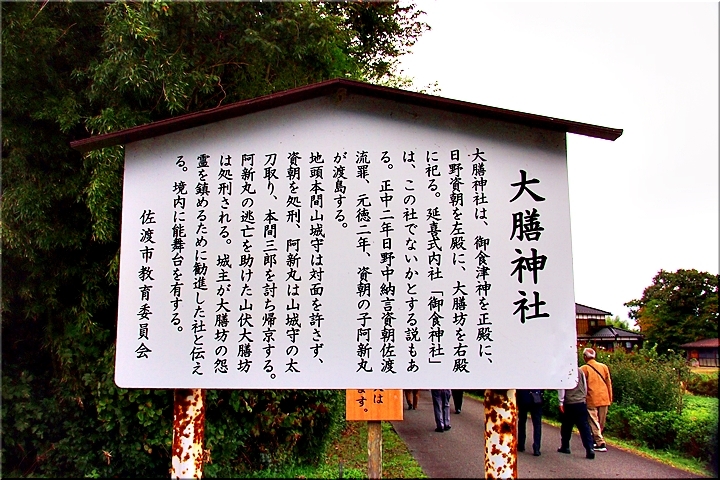 大膳神社
大膳神社は、御食津神を正殿に、
日野資朝を左殿に、大膳坊を右殿
に祀る。延喜式内社「御食神社」
は、この社でないかとする説もあ
る。正中二年日野中納言資朝佐渡
流罪、元徳二年、資朝の子阿新丸
が渡島する。
地頭本間山城守は対面を許さず、
資朝を処刑、阿新丸は山城守の太
刀取り、本間三郎を討ち帰京する。
阿新丸の逃亡を助けた山伏大膳坊
は処刑される。城主が大膳坊の怨
霊を鎮めるために勧進した社と伝え
る。境内に能舞台を有する。
佐渡市教育委員会
は
ます。